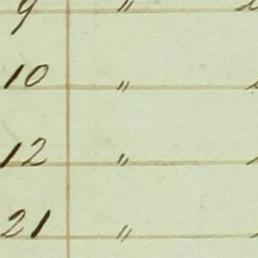 9 "
10 "
12 "
21 "